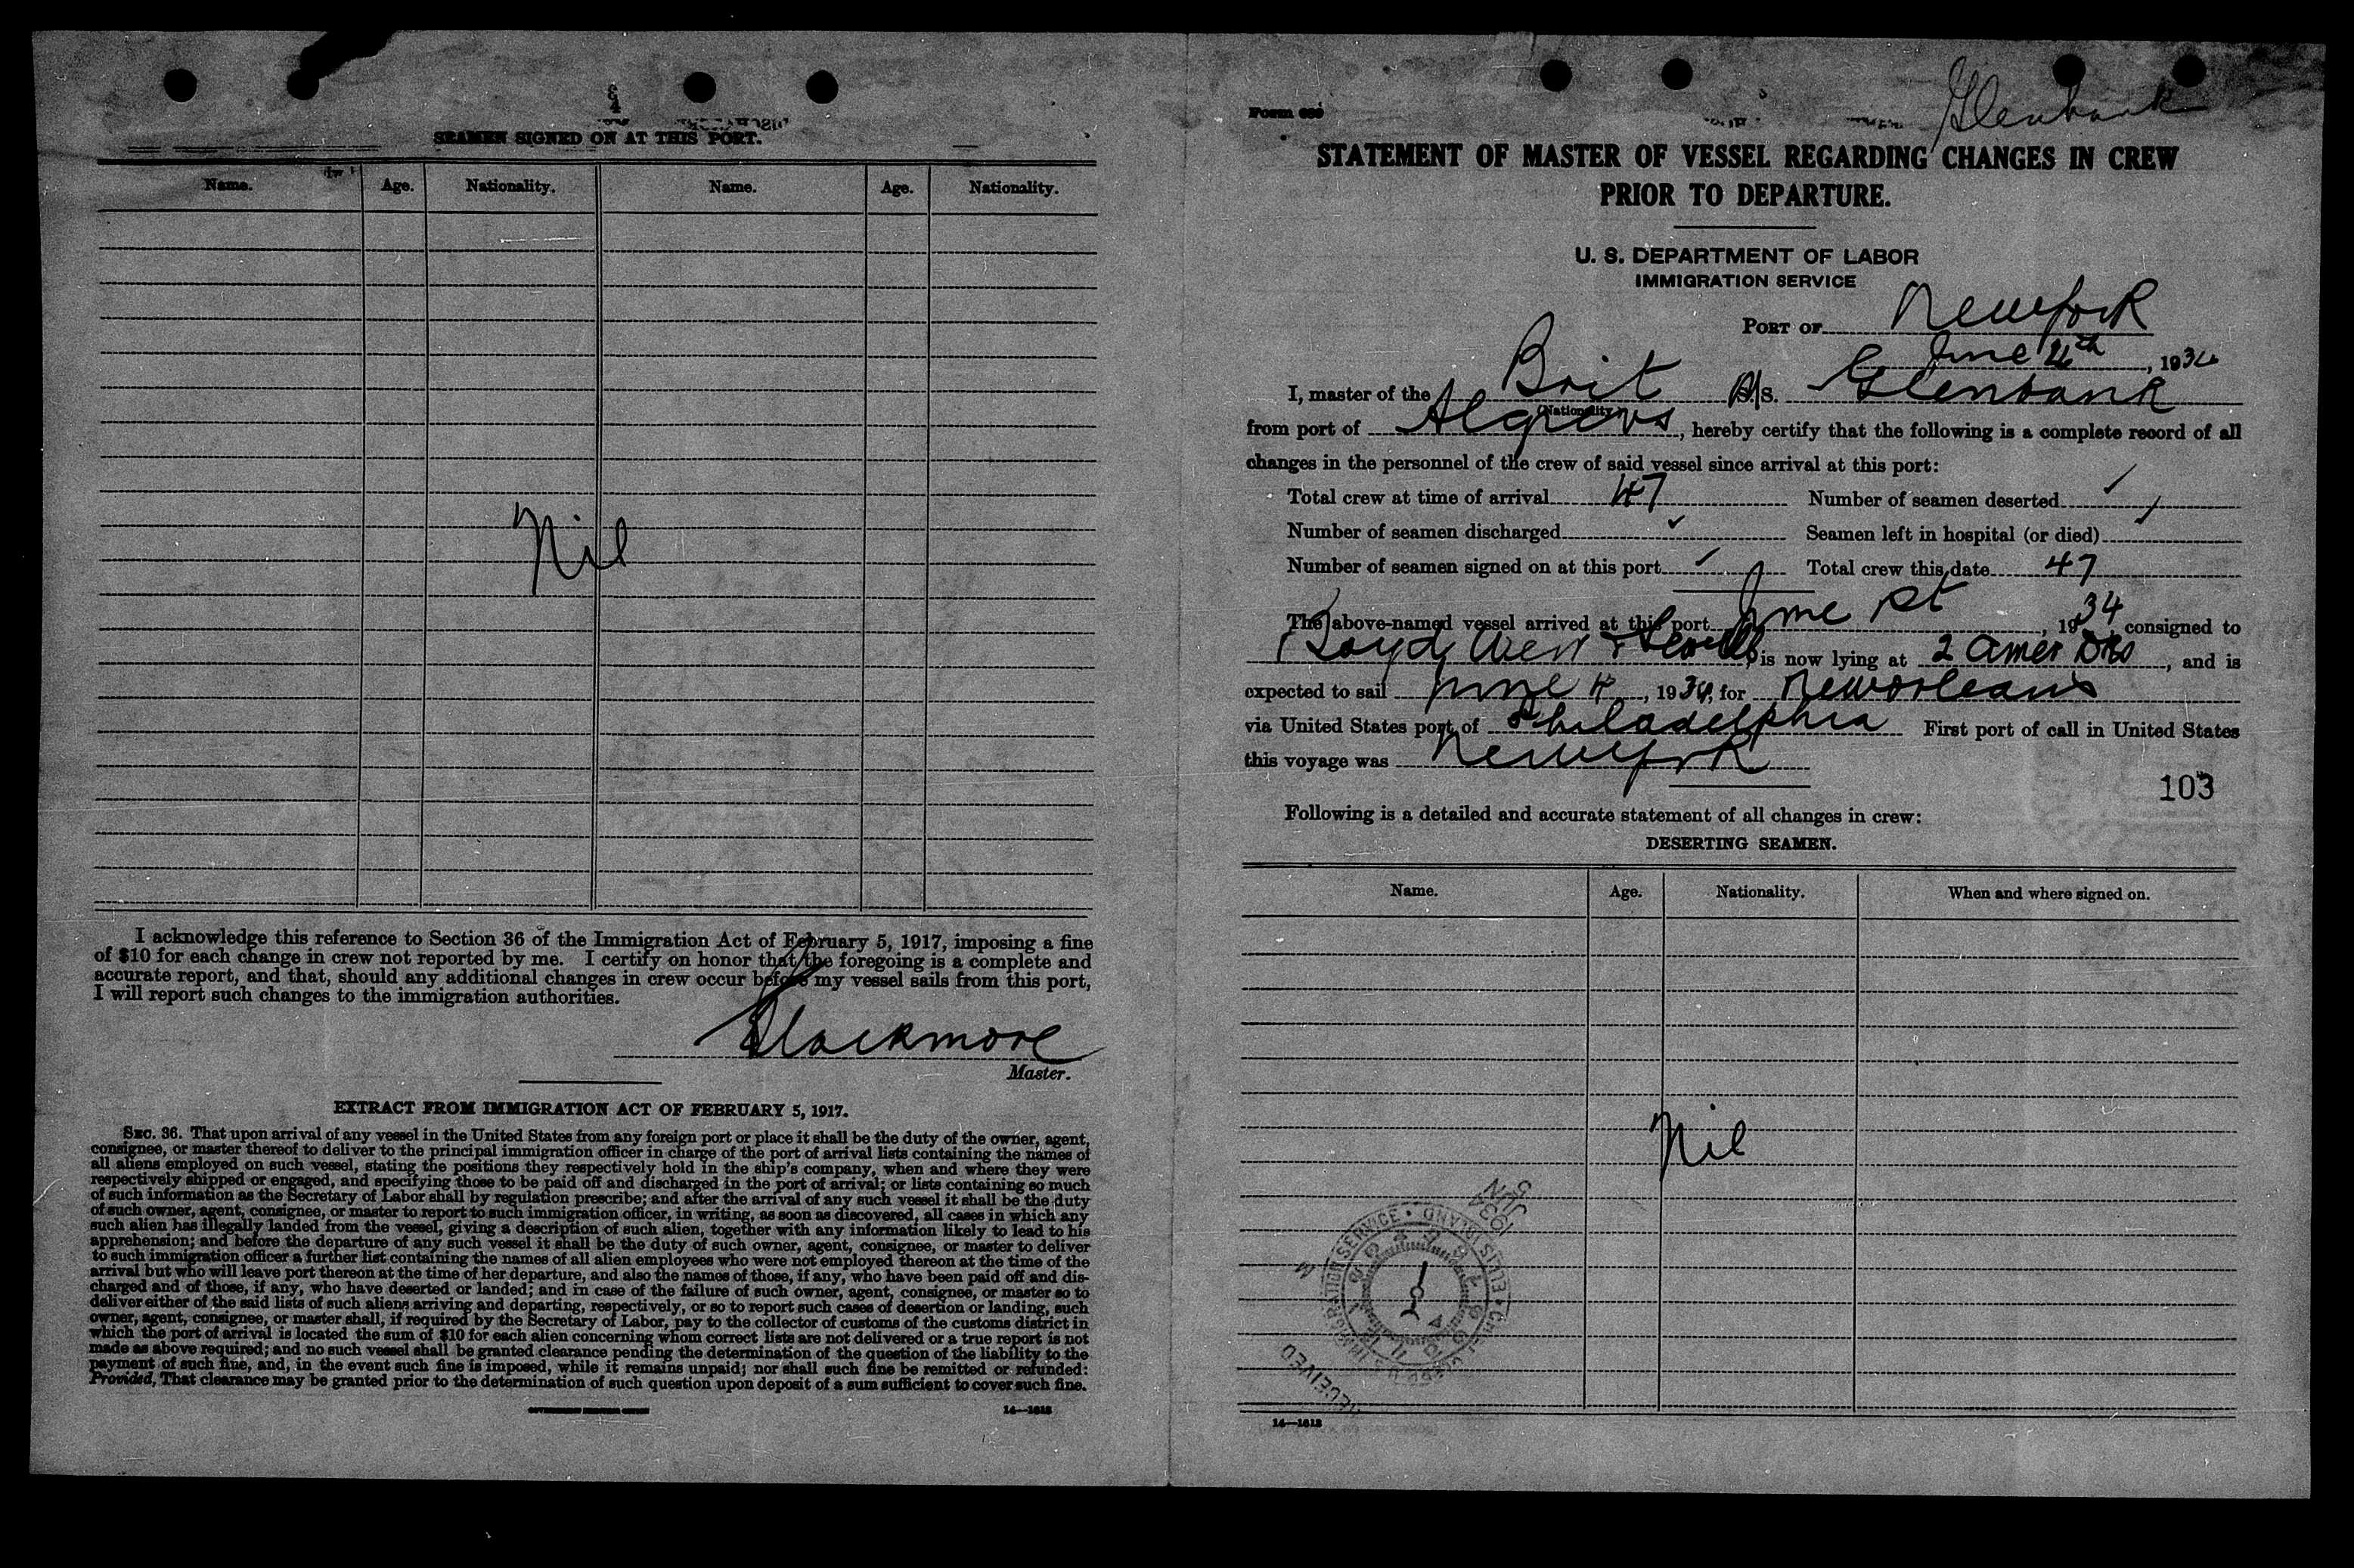 SEAMEN SIGNED ON AT THIS PORT.
Name. Age. Nationality. Name. Age. Nationality.
Nil
I acknowledge this reference to Section 36 of the Immigration Act of February 5, 1917, imposing a fine
of $10 for each change in crew not reported by me. I certify on honor that the foregoing is a complete and
accurate report, and that, should any additional changes in crew occur before my vessel sails from this port,
I will report such changes to the immigration authorities.
Blackmore
Master.
EXTRACT FROM IMMIGRATION ACT OF FEBRUARY 5, 1917.
SEC. 36. That upon arrival of any vessel in the United States from any foreign port or place it shall be the duty of the owner, agent,
consignee, or master thereof to deliver to the principal immigration officer in charge of the port of arrival lists containing the names of
all aliens employed on such vessel, stating the positions they respectively hold in the ship's company, when and where they were
respectively shipped or engaged, and specifying those to be paid off and discharged in the port of arrival; or lists containing so much
of such information as the Secretary of Labor shall by regulation prescribe; and after the arrival of any such vessel it shall be the duty
of such owner, agent, consignee, or master to report to such immigration officer, in writing, as soon as discovered, all cases in which any
such alien has illegally landed from the vessel, giving a description of such alien, together with any information likely to lead to his
apprehension; and before the departure of any such vessel it shall be the duty of such owner, agent, consignee, or master to deliver
to such immigration officer a further list containing the names of all alien employees who were not employed thereon at the time of the
arrival but who will leave port thereon at the time of her departure, and also the names of those, if any, who have been paid off and dis-
charged and of those, if any, who have deserted or landed; and in case of the failure of such owner, agent, consignee, or master so to
deliver either of the said lists of such aliens arriving and departing, respectively, or so to report such cases of desertion or landing, such
owner, agent, consignee, or master shall, if required by the Secretary of Labor, pay to the collector of customs of the customs district in
which the port of arrival is located the sum of $10 for each alien concerning whom correct lists are not delivered or a true report is not
made as above required; and no such vessel shall be granted clearance pending the determination of the question of the liability to the
payment of such fine, and, in the event such fine is imposed, while it remains unpaid; nor shall such fine be remitted or refunded:
Provided, That clearance may be granted prior to the determination of such question upon deposit of a sum sufficient to cover such fine.
GOVERNMENT PRINTING OFFICE 14—1613
Glenbank
Form 689
STATEMENT OF MASTER OF VESSEL REGARDING CHANGES IN CREW
PRIOR TO DEPARTURE.
U. S. DEPARTMENT OF LABOR
IMMIGRATION SERVICE
PORT OF New York
June 4th, 1934
I, master of the Brit S/S. Glenbank
(Nationality)
from port of Algiers, hereby certify that the following is a complete record of all
changes in the personnel of the crew of said vessel since arrival at this port:
Total crew at time of arrival 47 Number of seamen deserted ✓
Number of seamen discharged ✓ Seamen left in hospital (or died) ✓
Number of seamen signed on at this port ✓ Total crew this date 47
The above-named vessel arrived at this port June 1st, 1934 consigned to
Boyd, Weir & Sewell, is now lying at 2 Amer Dks, and is
expected to sail June 4, 1934, for New Orleans
via United States port of Philadelphia First port of call in United States
this voyage was New York
103
Following is a detailed and accurate statement of all changes in crew:
DESERTING SEAMEN.
Name. Age. Nationality. When and where signed on.
Nil
1934 JUN 5
IMMIGRATION SERVICE · ELLIS ISLAND
M
RECEIVED
14—1613